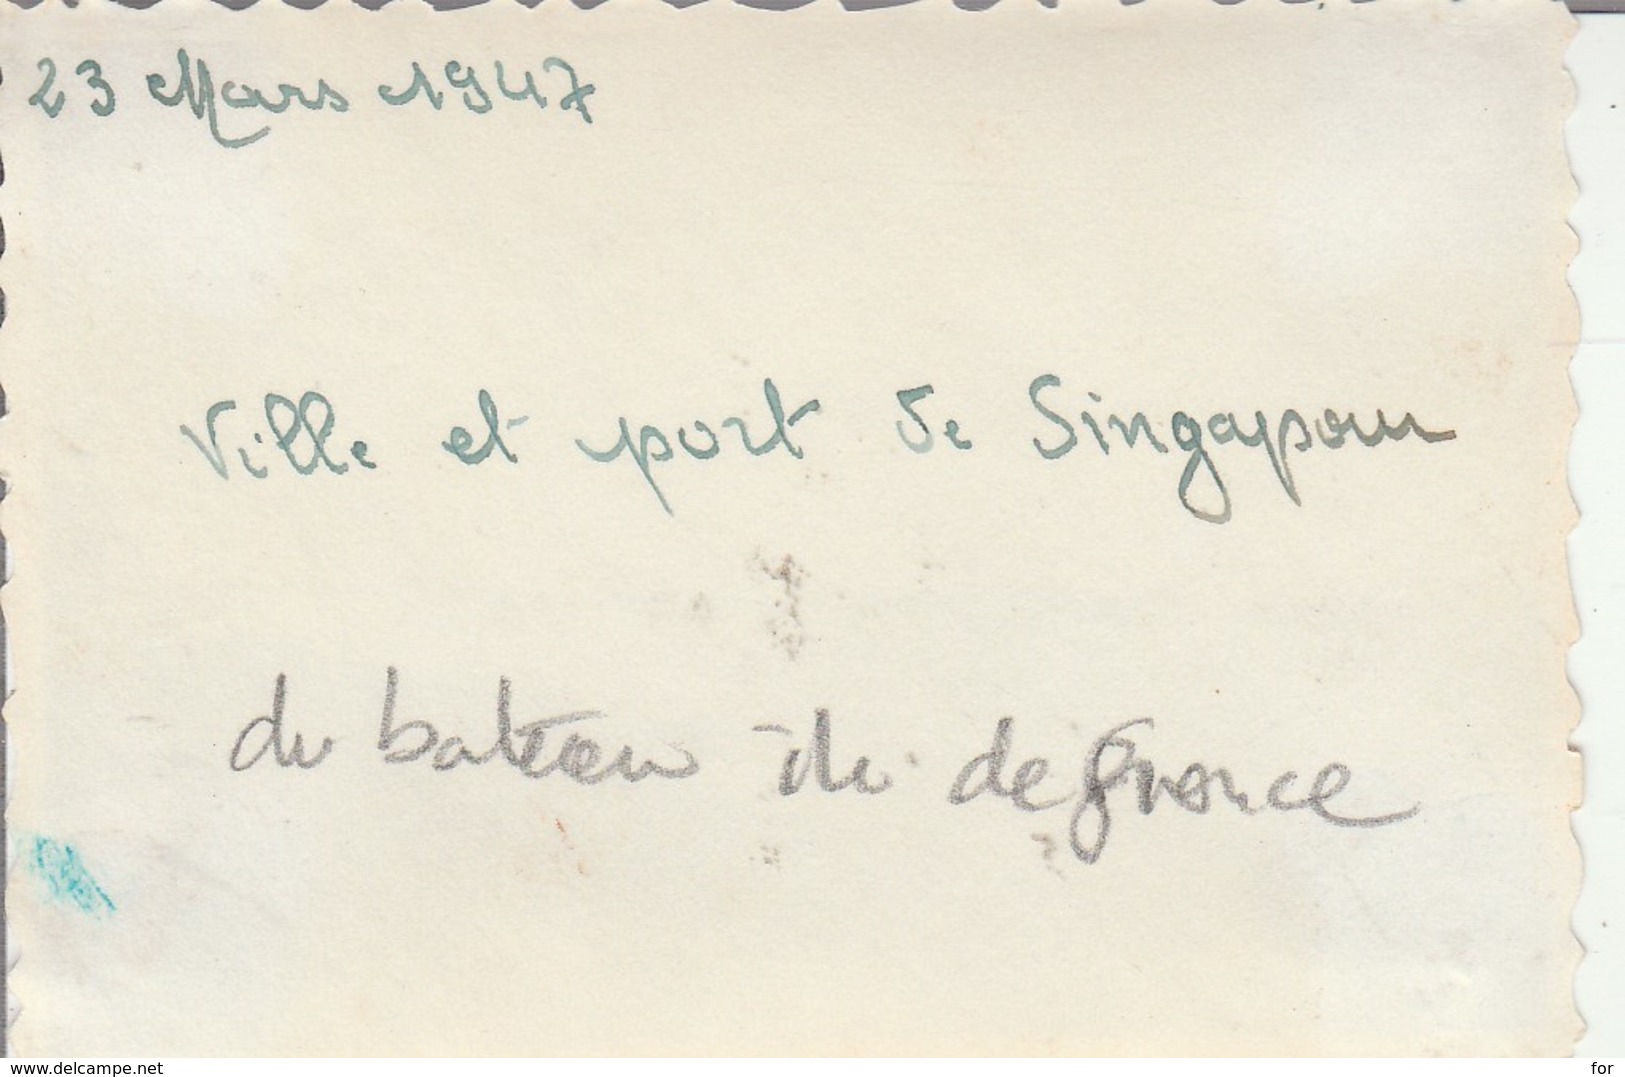 23 Mars 1947
Ville et port de Singapour
du bateau île de france
www.delcampe.net
for